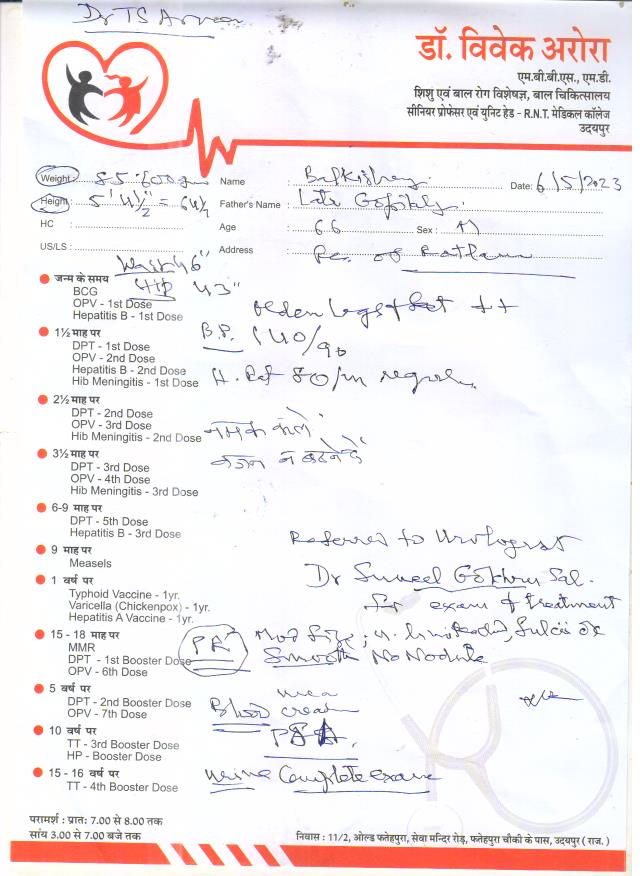 Dr TS Arora
डॉ. विवेक अरोरा
एम.बी.बी.एस., एम.डी.
शिशु एवं बाल रोग विशेषज्ञ, बाल चिकित्सालय
सीनियर प्रोफेसर एवं युनिट हेड - R.N.T. मेडिकल कॉलेज
उदयपुर
Weight :
Name : Balkishan
Date: 6/5/2023
Height : 5' 4½" = 64½
Father's Name : Late
HC :
Age : 66
Sex : M
US/LS :
Address : of Ratlam
46"
जन्म के समय HIP 43"
BCG
OPV - 1st Dose legs & feet ++
Hepatitis B - 1st Dose
1½ माह पर B.P. 140/90
DPT - 1st Dose
OPV - 2nd Dose
Hepatitis B - 2nd Dose H. Rat 80/m regular
Hib Meningitis - 1st Dose
2½ माह पर
DPT - 2nd Dose
OPV - 3rd Dose नमक
Hib Meningitis - 2nd Dose
3½ माह पर वजन न बढने दें
DPT - 3rd Dose
OPV - 4th Dose
Hib Meningitis - 3rd Dose
6-9 माह पर
DPT - 5th Dose
Hepatitis B - 3rd Dose Referred to Urologist
9 माह पर
Measels Dr Suneel
1 वर्ष पर
Typhoid Vaccine - 1yr. for exam & treatment
Varicella (Chickenpox) - 1yr.
Hepatitis A Vaccine - 1yr.
15 - 18 माह पर PR Mod Size ;
MMR
DPT - 1st Booster Dose Smooth No Nodule
OPV - 6th Dose
5 वर्ष पर urea
DPT - 2nd Booster Dose Blood
OPV - 7th Dose
10 वर्ष पर PSA.
TT - 3rd Booster Dose
HP - Booster Dose
15 - 16 वर्ष पर urine Complete exam
TT - 4th Booster Dose
परामर्श : प्रात: 7.00 से 8.00 तक
सांय 3.00 से 7.00 बजे तक
निवास : 11/2, ओल्ड फतेहपुरा, सेवा मन्दिर रोड़, फतेहपुरा चौकी के पास, उदयपुर ( राज. )